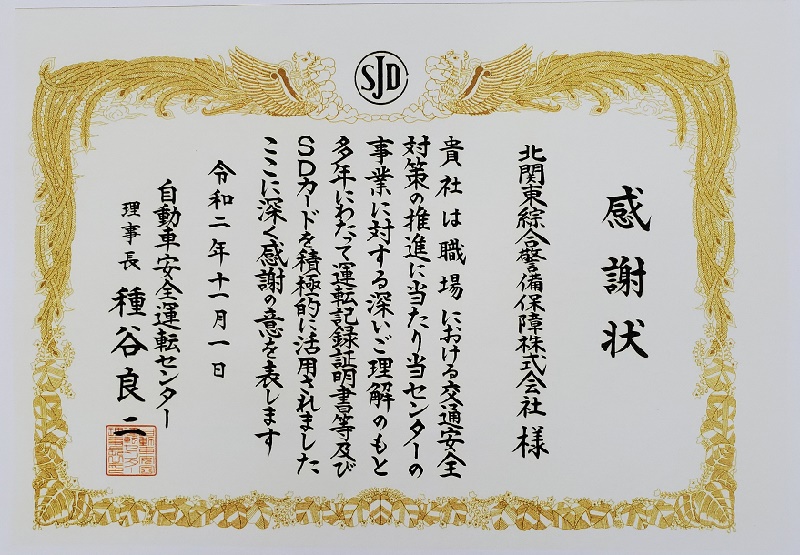 SJD
感謝状
北関東綜合警備保障株式会社 様
貴社は職場における交通安全
対策の推進に当たり当センターの
事業に対する深いご理解のもと
多年にわたって運転記録証明書等及び
SDカードを積極的に活用されました
ここに深く感謝の意を表します
令和二年十一月一日
自動車安全運転センター
理事長 種谷良二